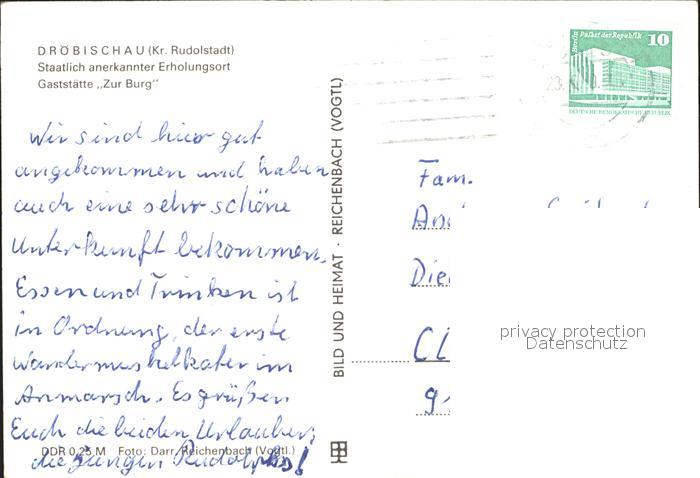 DRÖBISCHAU (Kr. Rudolstadt)
Staatlich anerkannter Erholungsort
Gaststätte „Zur Burg"
Wir sind hier gut
angekommen und haben
auch eine sehr schöne
Unterkunft bekommen.
Essen und Trinken ist
in Ordnung, der erste
Wandermuskelkater im
Anmarsch. Es grüßen
Euch die beiden Urlauber,
die jungen
DDR 0,25 M Foto: Darr, Reichenbach (Vogtl.)
BILD UND HEIMAT · REICHENBACH (VOGTL)
Berlin Palast der Republik 10
DEUTSCHE DEMOKRATISCHE REPUBLIK
Fam.
Die
CL
9
privacy protection
Datenschutz